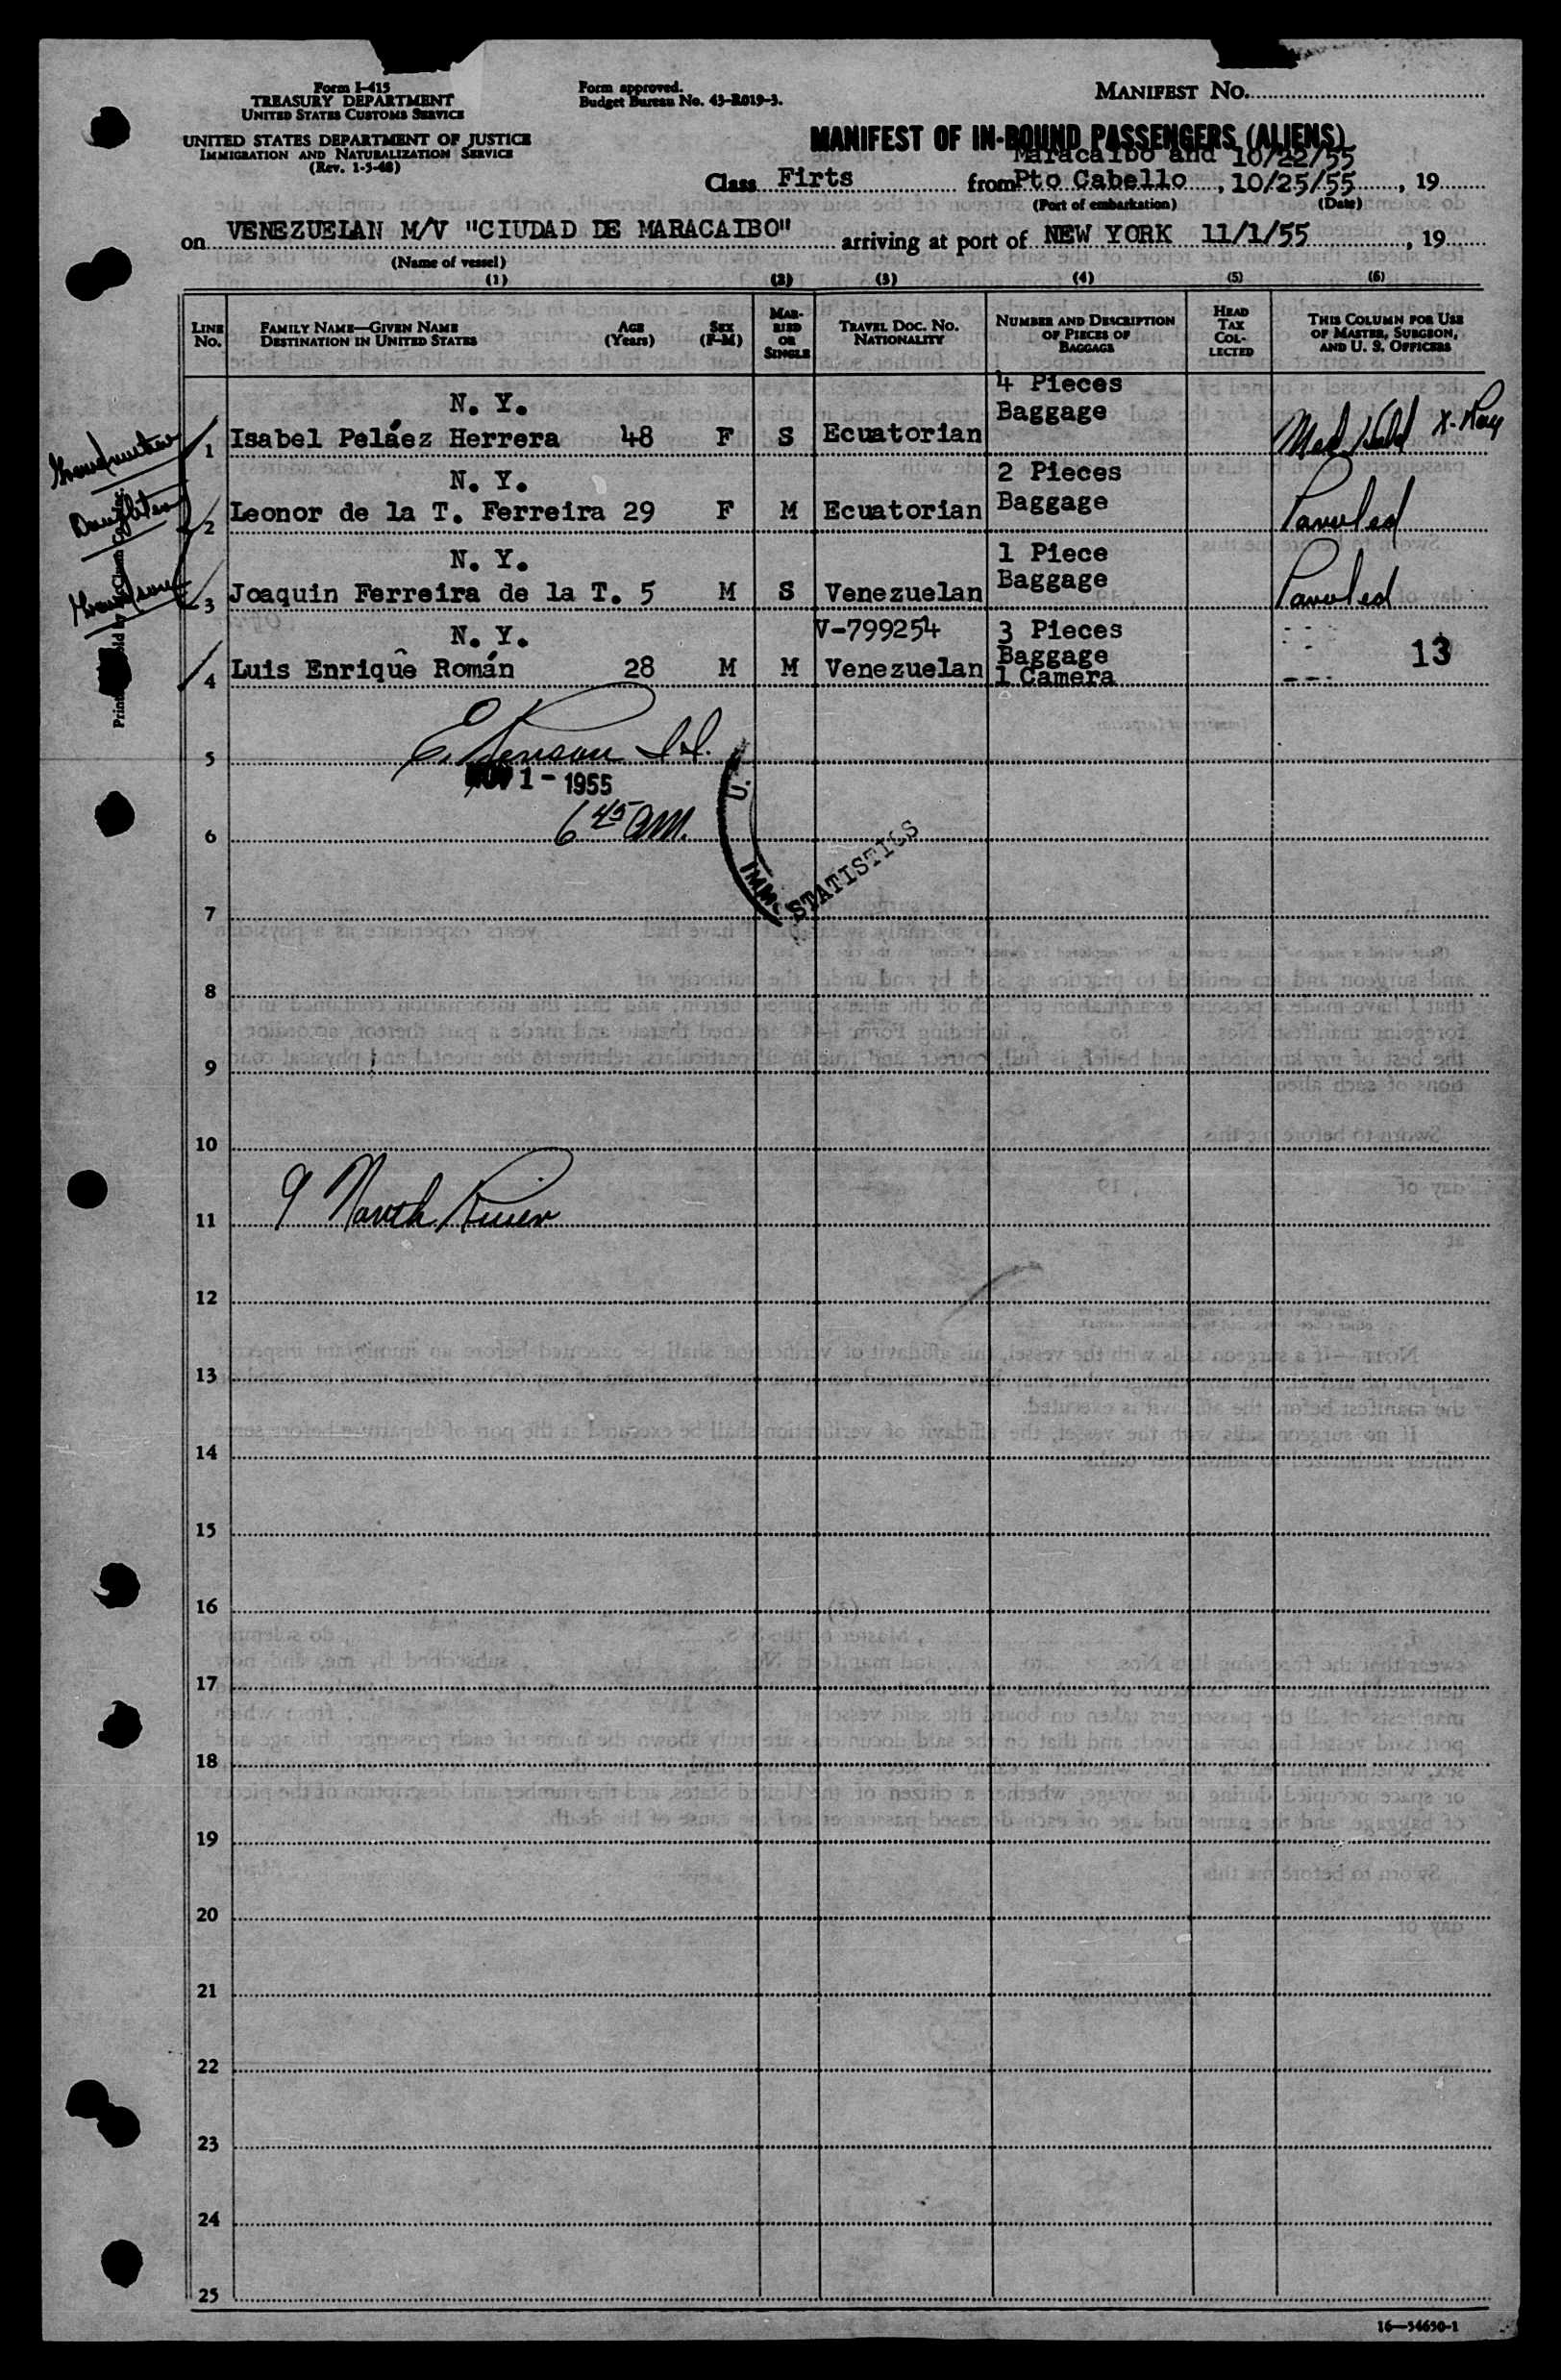 Form I-415
TREASURY DEPARTMENT
UNITED STATES CUSTOMS SERVICE
UNITED STATES DEPARTMENT OF JUSTICE
IMMIGRATION AND NATURALIZATION SERVICE
(Rev. 1-5-48)
Form approved.
Budget Bureau No. 43-R019-3.
MANIFEST No.
MANIFEST OF IN-BOUND PASSENGERS (ALIENS)
Maracaibo and 10/22/55
Class Firts from Pto Cabello, 10/25/55, 19
(Port of embarkation) (Date)
on VENEZUELAN M/V "CIUDAD DE MARACAIBO" arriving at port of NEW YORK 11/1/55, 19
(Name of vessel)
(1) (2) (3) (4) (5) (6)
LINE No.
FAMILY NAME—GIVEN NAME
DESTINATION IN UNITED STATES
AGE (Years)
SEX (F-M)
MARRIED OR SINGLE
TRAVEL DOC. NO.
NATIONALITY
NUMBER AND DESCRIPTION OF PIECES OF BAGGAGE
HEAD TAX COLLECTED
THIS COLUMN FOR USE OF MASTER, SURGEON, AND U. S. OFFICERS
N. Y. 4 Pieces
Grandmother 1 Isabel Peláez Herrera 48 F S Ecuatorian Baggage Med Hold X-Ray
N. Y. 2 Pieces
Daughter 2 Leonor de la T. Ferreira 29 F M Ecuatorian Baggage Paroled
N. Y. 1 Piece
Grandson 3 Joaquin Ferreira de la T. 5 M S Venezuelan Baggage Paroled
N. Y. V-799254 3 Pieces
4 Luis Enrique Román 28 M M Venezuelan Baggage 13
1 Camera
5
NOV 1 - 1955
6 45 AM.
6
U.
IMM.
STATISTICS
7
8
9
10
9 North River
11
12
13
14
15
16
17
18
19
20
21
22
23
24
25
16—54650-1